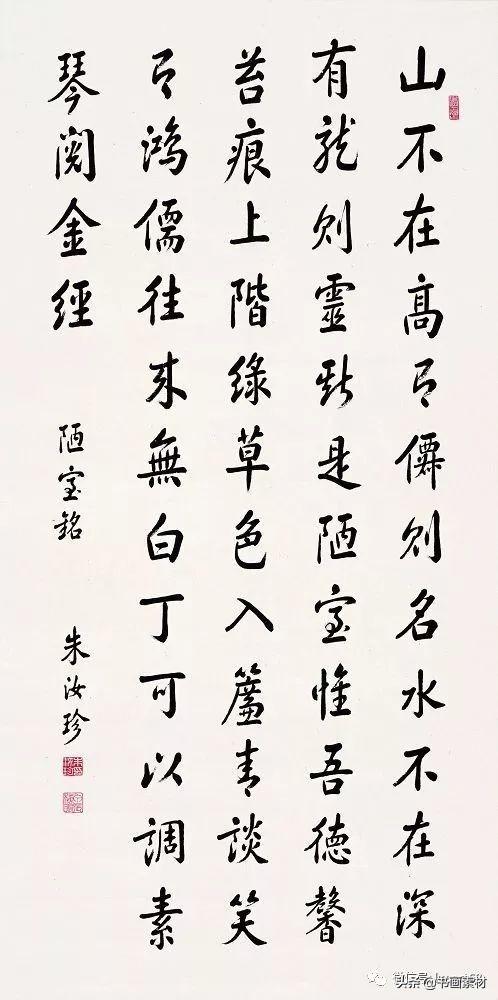 山不在高有僊则名水不在深
有龙则靈斯是陋室惟吾德馨
苔痕上階綠草色入簾青談笑
有鴻儒往来無白丁可以調素
琴閱金經
陋室銘
朱汝珍
头条 @书画素材